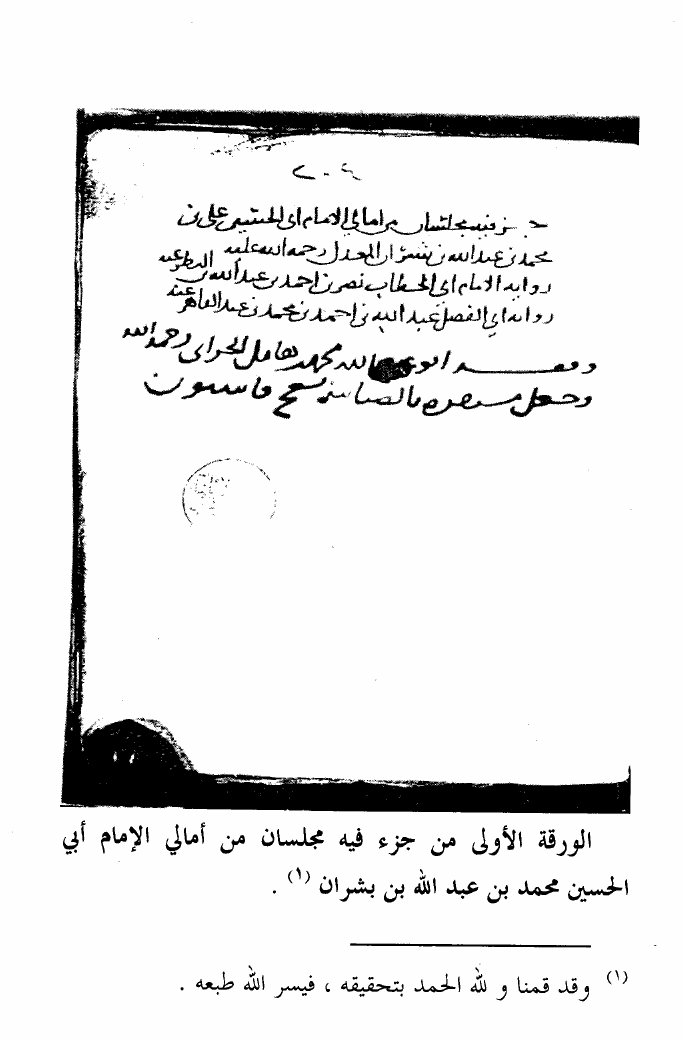 ٢٠٤
جزء فيه مجلسان من امالي الامام ابي الحسين علي بن
محمد بن عبد الله بن بشران المعدل رحمة الله عليه
رواية الامام ابي الخطاب نصر بن احمد بن عبد الله بن البطر عنه
رواية ابي الفضل عبد الله بن احمد بن محمد بن عبد القاهر عنه
وقفه ابو عبد الله محمد بن هامل الحراني رحمه الله
وجعل مستقره بالضيائية بسفح قاسيون
الورقة الأولى من جزء فيه مجلسان من أمالي الإمام أبي
الحسين محمد بن عبد الله بن بشران (١) .
(١) وقد قمنا و لله الحمد بتحقيقه ، فيسر الله طبعه .